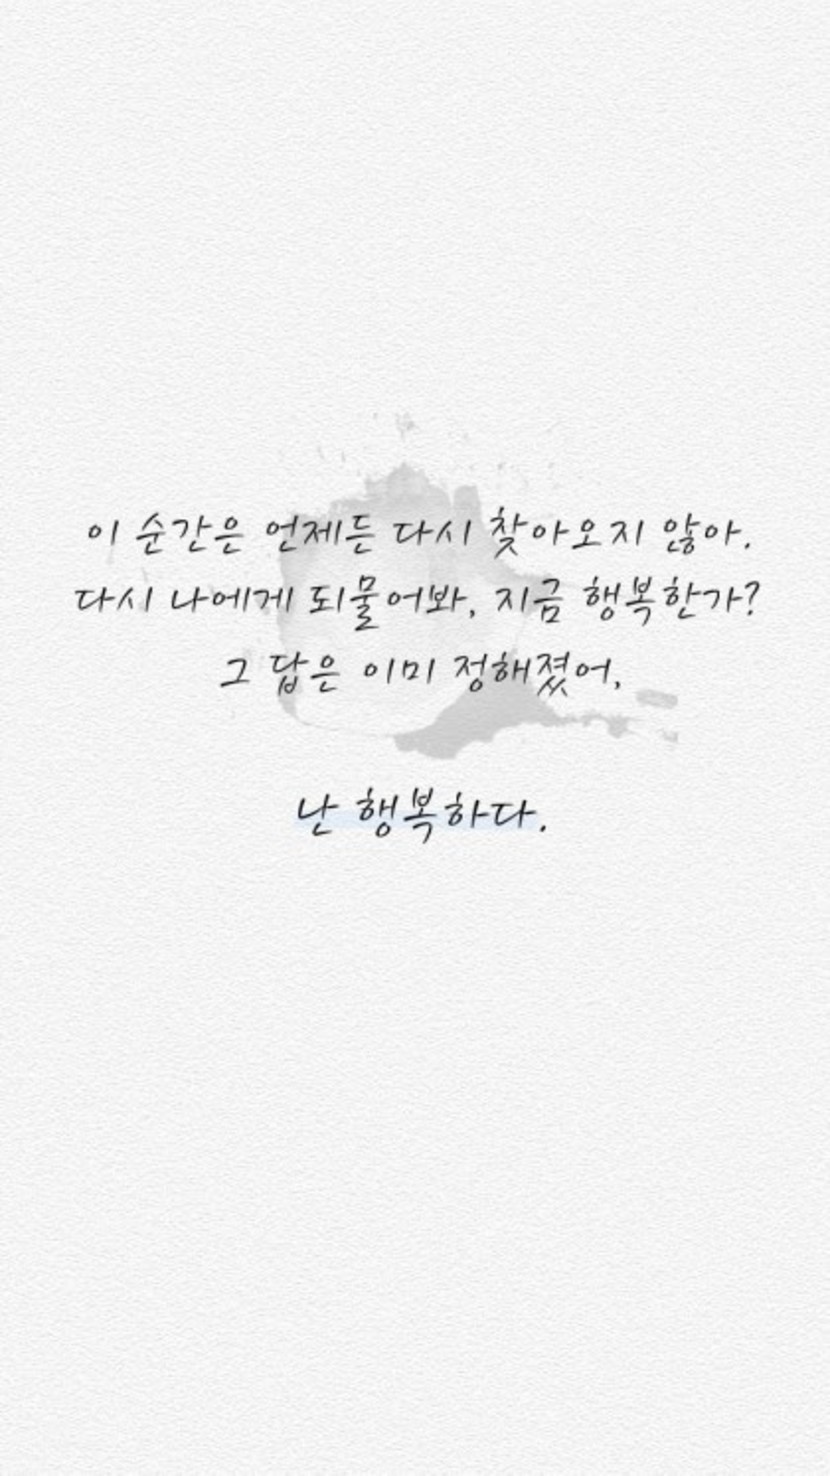 이 순간은 언제든 다시 찾아오지 않아.
다시 나에게 되물어봐, 지금 행복한가?
그 답은 이미 정해졌어,
난 행복하다.